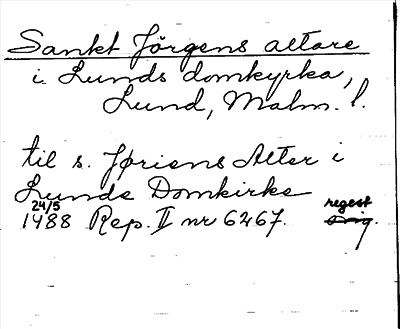 Sankt Jörgens altare
i Lunds domkyrka,
Lund, Malm. l.
til s. Jøriens Alter i
Lunde Domkirke
24/5 regest
1488 Rep. II nr 6267. orig.